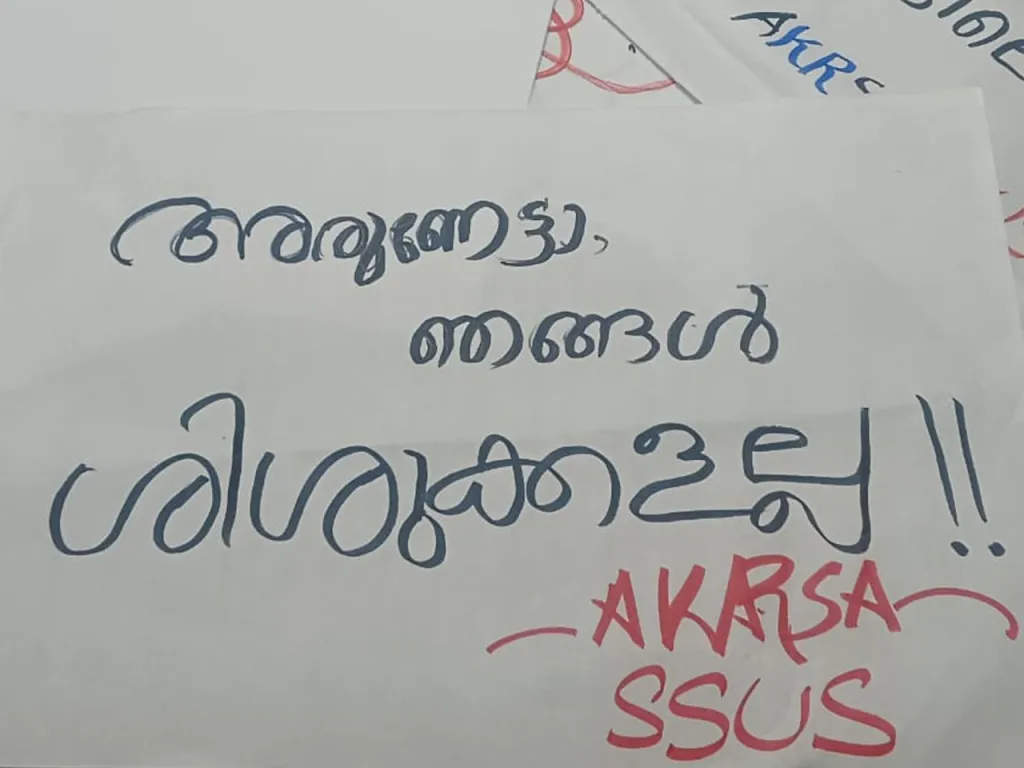 AKRS
അരുണേട്ടാ,
ഞങ്ങൾ
ശിശുക്കളല്ല !!
AKRSA
SSUS